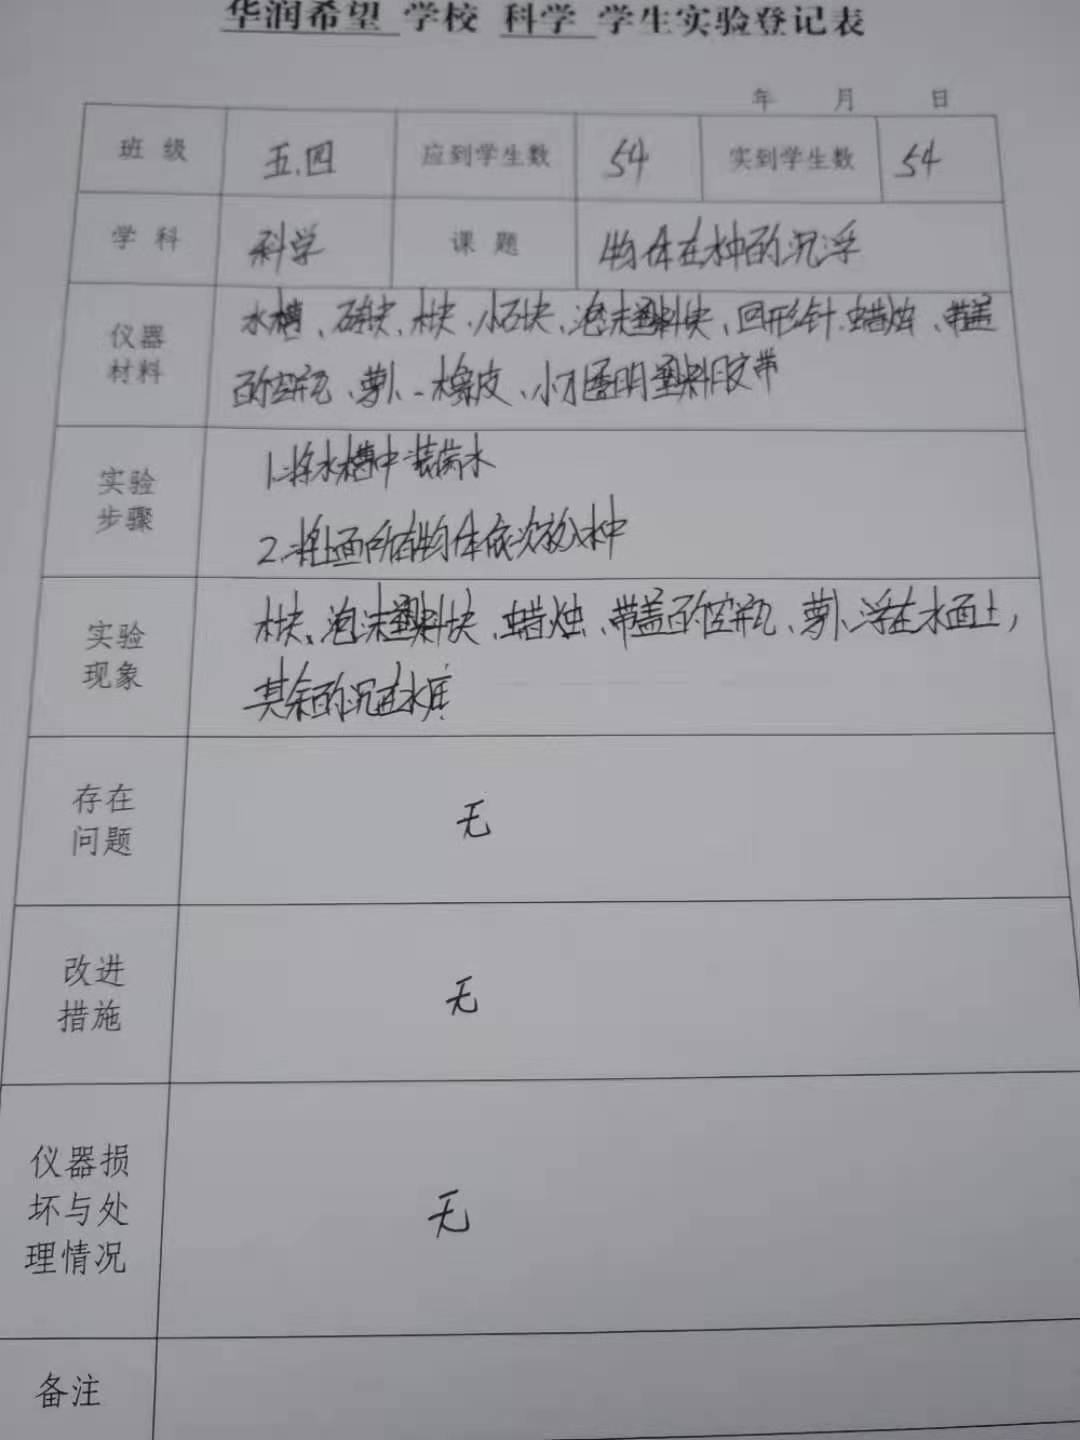 华润希望 学校 科学 学生实验登记表
年 月 日
班级 五.四 应到学生数 54 实到学生数 54
学科 科学 课题 物体在水中的沉浮
仪器材料 水槽、砖块、木块、小石块、泡沫塑料块、回形针、蜡烛、带盖
的空瓶、萝卜、橡皮、小刀、透明塑料胶带
实验步骤 1.将水槽中装满水
2.将上面所有物体依次放入水中
实验现象 木块、泡沫塑料块、蜡烛、带盖的空瓶、萝卜、浮在水面上,
其余的沉进水底
存在问题 无
改进措施 无
仪器损坏与处理情况 无
备注